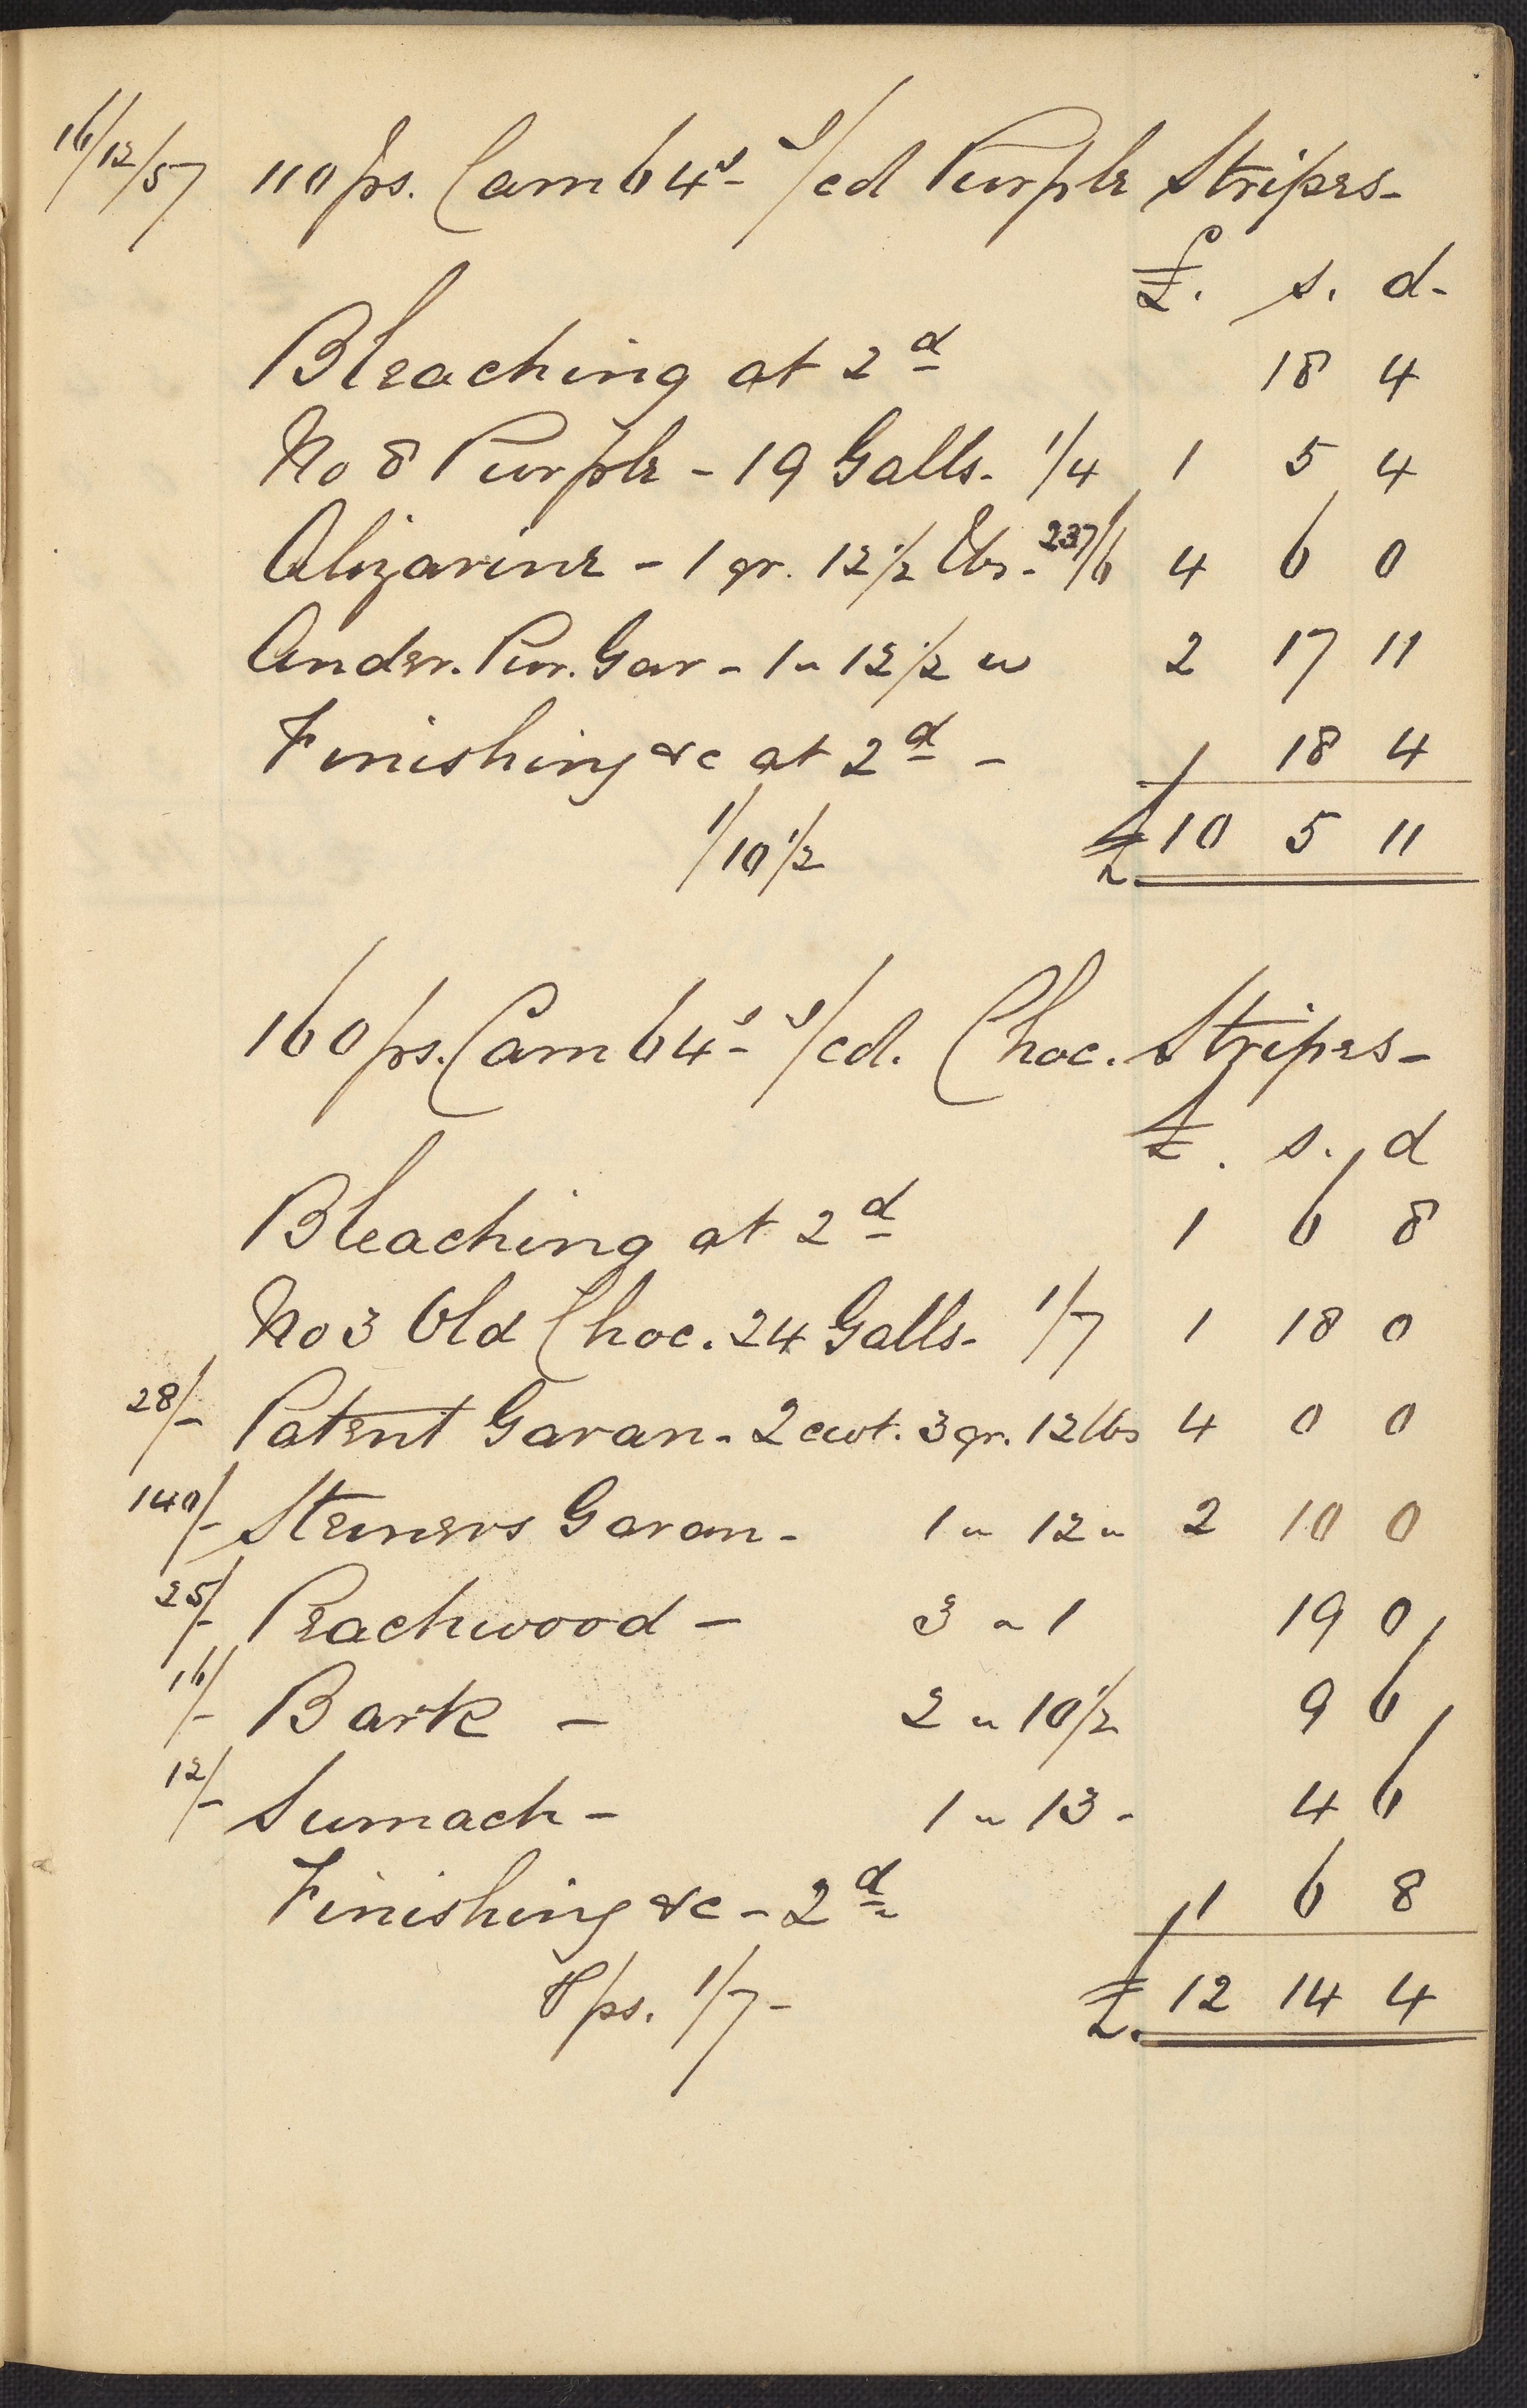 16/12/57 110 ps. Cam 64s- s/cd Purple Stripes-
£. s. d-
Bleaching at 2d 18 4
No 8 Purple - 19 Galls. 1/4 1 5 4
Alizarine - 1 qr. 12 1/2 lbs - 237/6 4 6 0
Ander. Pur. Gar - 1 " 12 1/2 " 2 17 11
Finishing &c at 2d - 18 4
1/10 1/2 £10 5 11
160 ps. Cam 64s- s/cd. Choc. Stripes-
£. s. d
Bleaching at 2d 1 6 8
No 3 Old Choc. 24 Galls- 1/7 1 18 0
28/- Patent Garan - 2 cwt. 3 qr. 12 lbs 4 0 0
140/- Steiners Garan - 1 " 12 " 2 10 0
25/- Peachwood - 3 " 1 19 0
16/- Bark - 2 " 10 1/2 9 6
12/- Sumach - 1 " 13 - 4 6
Finishing &c - 2d 1 6 8
ps. 1/7- £ 12 14 4